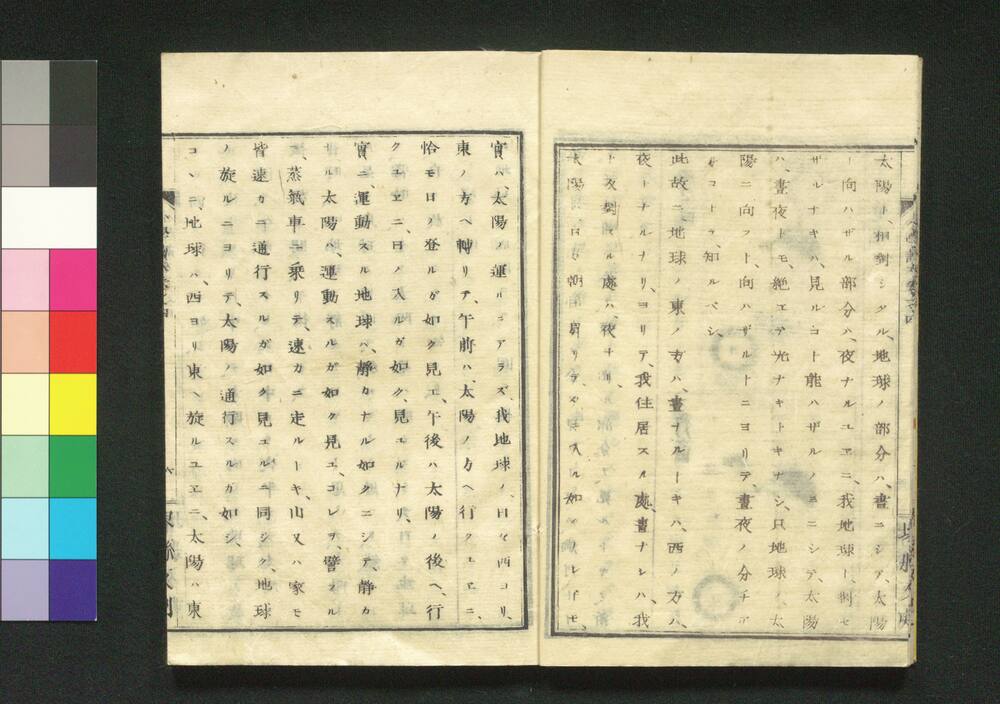 太陽ト、相對シタル、地球ノ部分ハ、晝ニシテ、太陽
ト向ハザル部分ハ、夜ナルユヱニ、我地球ト、對セ
ザルナキハ、見ルコト能ハザルノミニシテ、太陽
ハ、晝夜トモ、絶エテ光ナキトキナシ、只地球ノ、太
陽ニ向フト、向ハザルトニヨリテ、晝夜ノ分チア
ルコトヲ、知ルベシ、
此故ニ、地球ノ東ノ方ハ、晝ナルトキハ、西ノ方ハ、
夜トナルナリ、ヨリテ、我住居スル處晝ナレハ、我
ト反對スル處ハ、夜ナリ、
太陽ハ、日々朝ニ昇リテ、夕ニ入ル如クナレドモ、
實ハ、太陽ノ運ルニアラズ、我地球ノ、日々西ヨリ、
東ノ方ヘ轉リテ、午前ハ、太陽ノ方ヘ行クユヱニ、
恰モ日ノ登ルガ如ク見エ、午後ハ太陽ノ後ヘ、行
クユヱニ、日ノ入ルガ如ク、見エルナリ、
實ニ、運動スル地球ハ、靜カナル如クニシテ、靜カ
ナル太陽ハ、運動スルガ如ク見エ、コレヲ、譬フル
ニ、蒸氣車ニ乘リテ、速カニ走ルトキ、山又ハ家モ
皆速カニ通行スルガ如ク見エルニ同ジク、地球
ノ旋ルニヨリテ、太陽ノ通行スルガ如シ、
コヽニ、地球ハ、西ヨリ東ヘ旋ルユヱニ、太陽ハ東